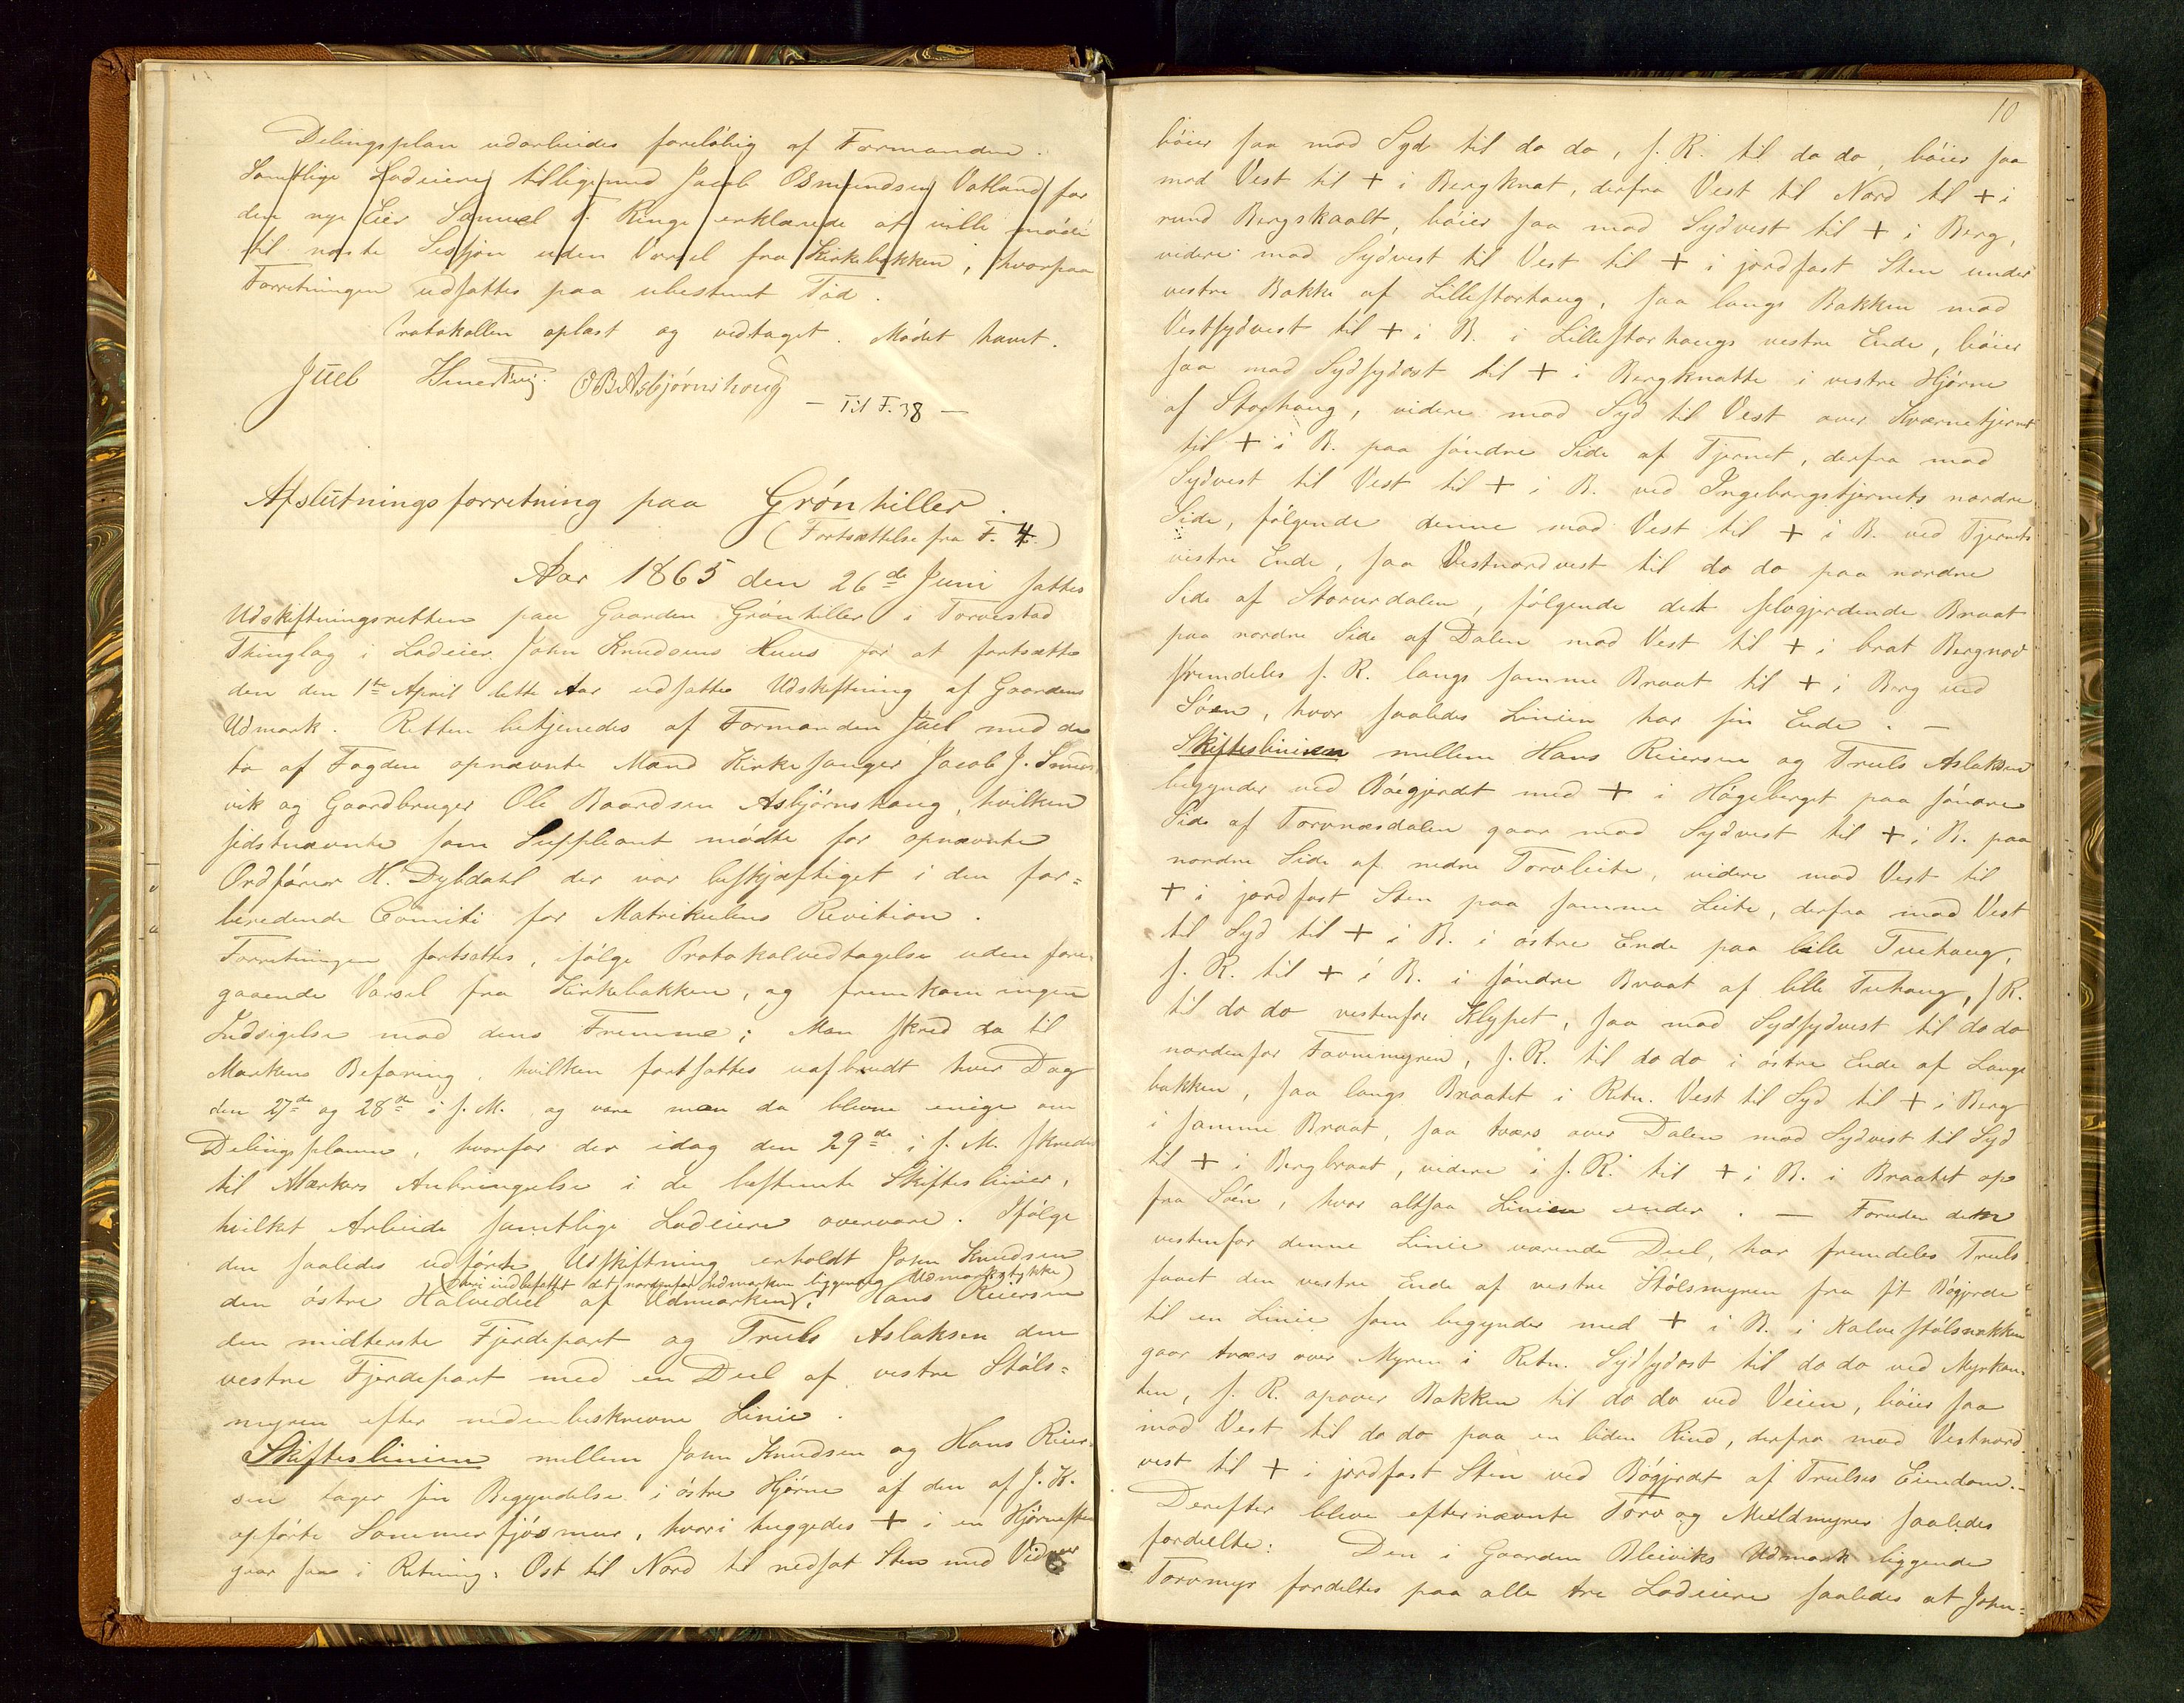 Delingsplan udarbeides foreløbig af Formanden.
Samtlige Lodeiere tilligemed Jacob Osmundsen Vatland for
den nye Eier Samuel T. Ringe erklærede at ville møde
til næste Session uden Varsel fra Kirkebakken, hvorpaa
Forretningen udsattes paa ubestemt Tid.
Protokollen oplæst og vedtaget. Mødet hævet.
Juel OBAsbjørnshoug
— Til F. 38 —
Afslutningsforretning paa Grønhiller.
(Fortsættelse fra F. 4)
Aar 1865 den 26de Juni sattes
Udskiftningsretten paa Gaarden Grønhiller i Torvestad
Thinglag i Lodeier John Knudsens Huus for at fortsætte
den den 1ste April dette Aar udsatte Udskiftning af Gaardens
Udmark. Retten betjenedes af Formanden Juel med de
to af Fogden opnævnte Mænd Kirkesanger Jacob J. Smør-
vik og Gaardbruger Ole Baardsen Asbjørnshaug, hvilken
sidstnævnte som Suppleant mødte for opnævnte
Ordfører H. Dybdahl der var beskjæftiget i den for=
beredende Comité for Matrikulens Revition.
Forretningen fortsattes, ifølge Protokolvedtagelse uden fore-
gaaende Varsel fra Kirkebakken, og fremkom ingen
Indsigelse mod dens Fremme; Man skred da til
Markens Befaring, hvilken fortsattes uafbrudt hver Dag
den 27de og 28de i s. M. og vare man da blevne enige om
Delingsplanen, hvorfor der idag den 29de i s. M. skredes
til Mærkers Anbringelse i de bestemte Skifteslinier,
hvilket Arbeide samtlige Lodeiere overvare. Ifølge
den saaledes udførte Udskiftning erholdt John Knudsen
(hvori indbefattet det nordenfor Indmarken liggende Udmarkstykke)
den østre Halvedeel af Udmarken, Hans Reiersen
den midterste Fjerdepart og Truls Aslaksen den
vestre Fjerdepart med en Deel af vestre Støls=
myren efter nedenbeskrevne Linie.
Skifteslinien mellem John Knudsen og Hans Reier-
sen tager sin Begyndelse i østre Hjørne af den af J. K.
opførte Sommerfjøsmur, hvori huggedes + i en Hjørnesten
gaar saa i Retning: Ost til Nord til nedsat Sten med Vidner
10
bøier saa mod Syd til do do, s. R. til do do, bøier saa
mod Vest til + i Bergknat, derfra Vest til Nord til + i
rund Bergskaalt, bøier saa mod Sydvest til + i Berg,
videre mod Sydvest til Vest til + i jordfast Sten under
vestre Bakke af Lillestorhaug, saa langs Bakken mod
Vestsydvest til + i B. i Lillestorhaugs vestre Ende, bøier
saa mod Sydsydost til + i Bergknatte i vestre Hjørne
af Storhaug, videre mod Syd til Vest over Kvernetjernet
til + i B. paa søndre Side af Tjernet, derfra mod
Sydvest til Vest til + i B. ved Ingeborgstjernets nordre
Side, følgende denne mod Vest til + i B. ved Tjernets
vestre Ende, saa Vestnordvest til do do paa nordre
Side af Storurdalen, følgende det selvgjerdende Braat
paa nordre Side af Dalen mod Vest til + i brat Bergnov
fremdeles s. R. langs samme Braat til + i Berg ved
Søen, hvor saaledes Linien har sin Ende. —
Skifteslinien mellem Hans Reiersen og Truls Aslaksen
begynder ved Bøegjerdet med + i Høgeberget paa søndre
Side af Torvnæsdalen gaar mod Sydvest til + i B. paa
nordre Side af nedre Torvleite, videre mod Vest til
+ i jordfast Sten paa samme Leite, derfra mod Vest
til Syd til + i B. i østre Ende paa lille Tuehaug,
s. R. til + i B. i søndre Braat af lille Tuehaug, s R.
til do do vestenfor Klypet, saa mod Sydsydvest til do do
nordenfor Favnemyren, s. R. til do do i østre Ende af Lange
bakken, saa langs Braatet i Retn. Vest til Syd til + i Berg
i samme Braat, saa tværs over Dalen mod Sydvest til Syd
til + i Bergbraat, videre i s. R. til + i B. i Braatet op
fra Søen, hvor altsaa Linien ender. — Foruden den
vestenfor denne Linie værende Deel, har fremdeles Truls
faaet den vestre Ende af vestre Stølsmyren fra sit Bøgjerde
til en Linie som begynder med + i B. i Kalvestølsnakken
gaar tværs over Myren i Retn. Sydsydost til do do ved Myrkan-
ten, s. R. opover Bakken til do do ved Veien, bøier saa
mod Vest til do do paa en liden Rind, derfra mod Vestnord
vest til + i jordfast Sten ved Bøgjerdet af Trulses Eiendom.-
Derefter bleve efternævnte Torv og Meldmyrer saaledes
fordeelte: Den i Gaarden Bleiviks Udmark liggende
Torvmyr fordeeltes paa alle tre Lodeiere saaledes at John=